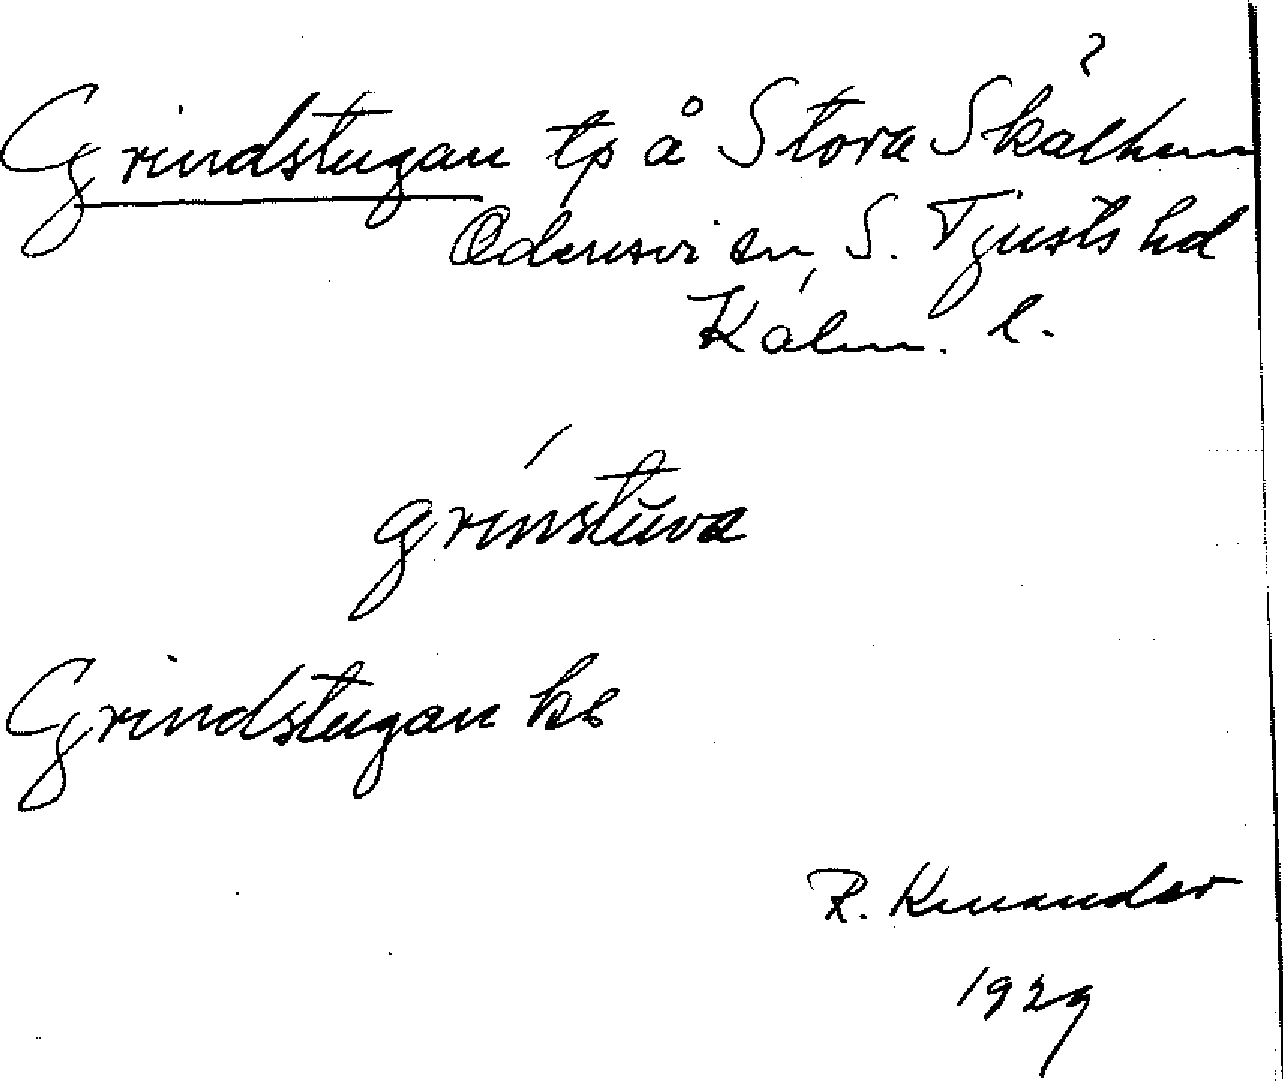 Grindstugan tp å Stora Skälhem ?
Odensvi sn, S. Tjusts hd
Kalm. l.
grinstuva
Grindstugan ks
R. Knander
1929